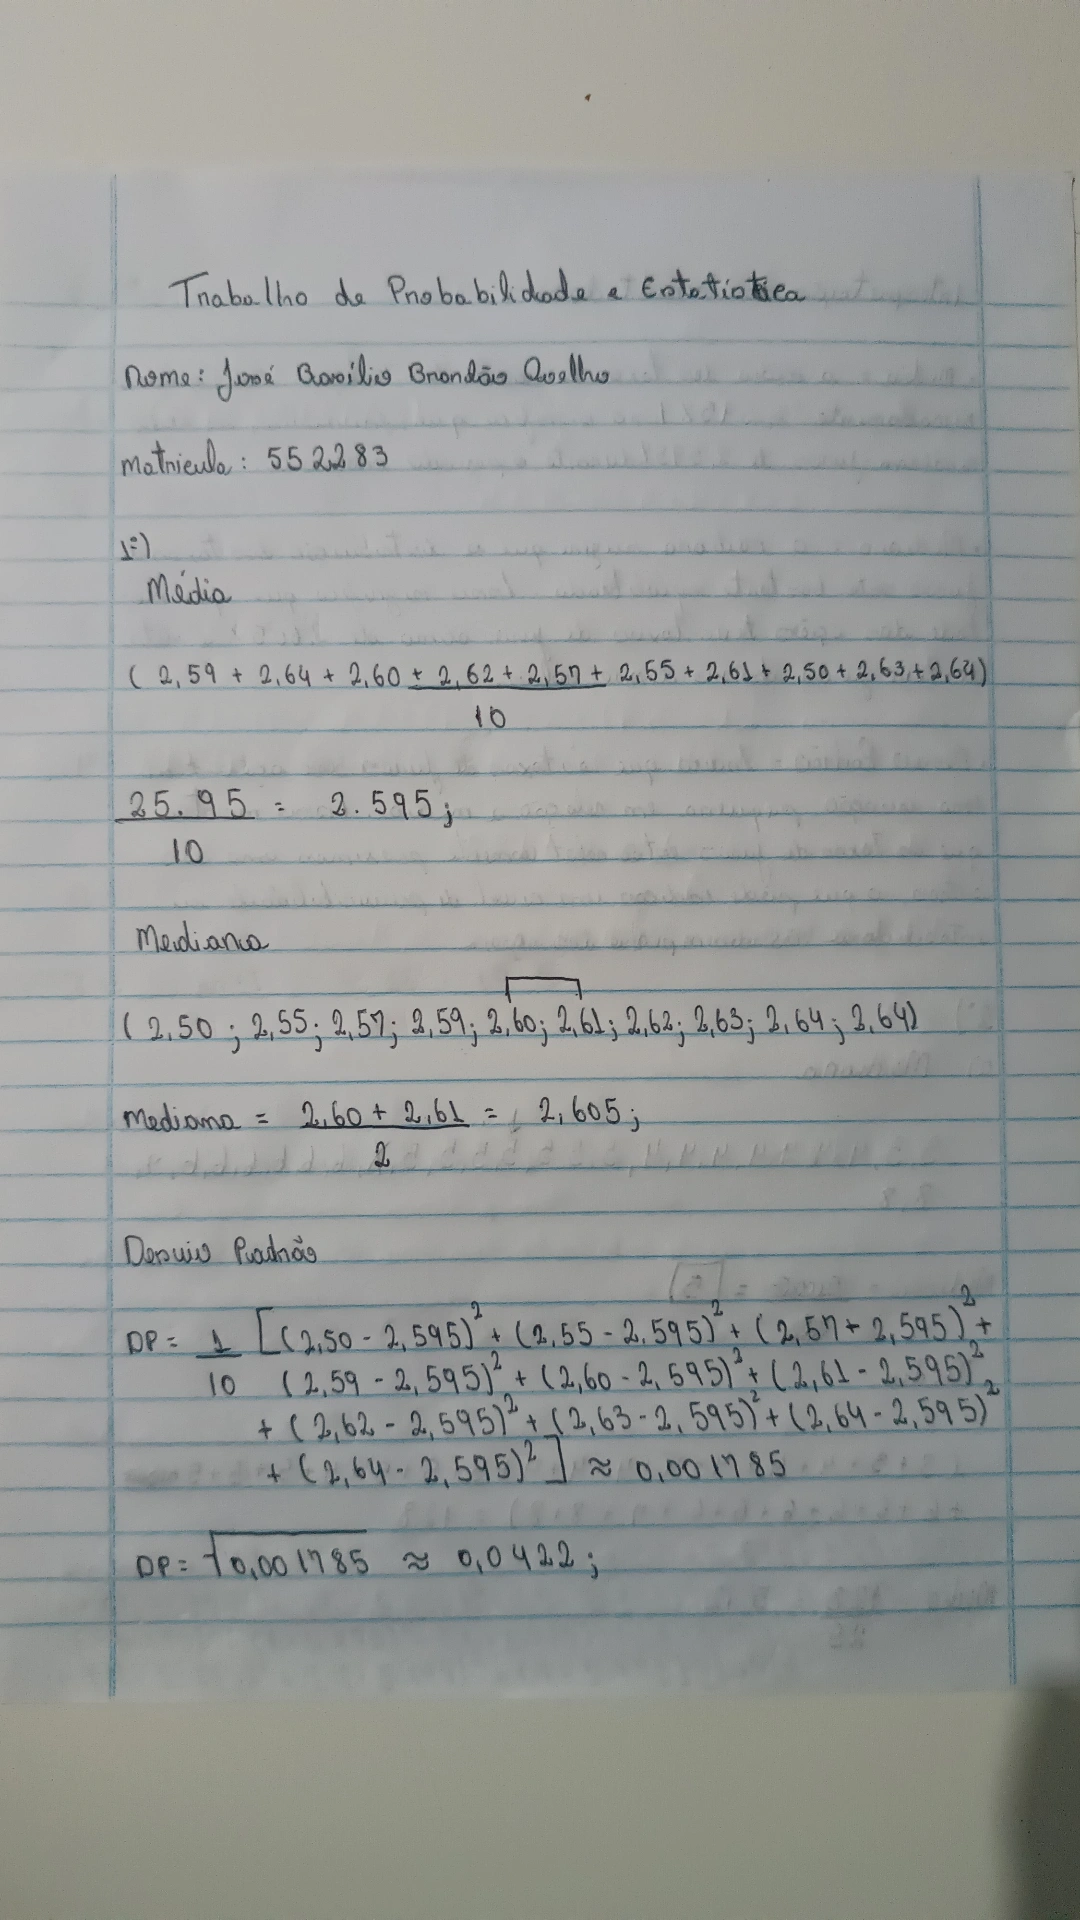 Trabalho de Probabilidade e Estatística
Nome: José Basílio Brandão Coelho
Matricula: 552283
1º)
Média
(2,59 + 2,64 + 2,60 + 2,62 + 2,57 + 2,55 + 2,61 + 2,50 + 2,63 + 2,64)
10
25.95 = 2.595;
10
Mediana
(2,50; 2,55; 2,57; 2,59; 2,60; 2,61; 2,62; 2,63; 2,64; 2,64)
Mediana = 2,60 + 2,61 = 2,605;
2
Desvio Padrão
DP = 1 [(2,50 - 2,595)² + (2,55 - 2,595)² + (2,57 + 2,595)² +
10 (2,59 - 2,595)² + (2,60 - 2,595)² + (2,61 - 2,595)²
+ (2,62 - 2,595)² + (2,63 - 2,595)² + (2,64 - 2,595)²
+ (2,64 - 2,595)²] ≈ 0,001785
DP = √0,001785 ≈ 0,0422;